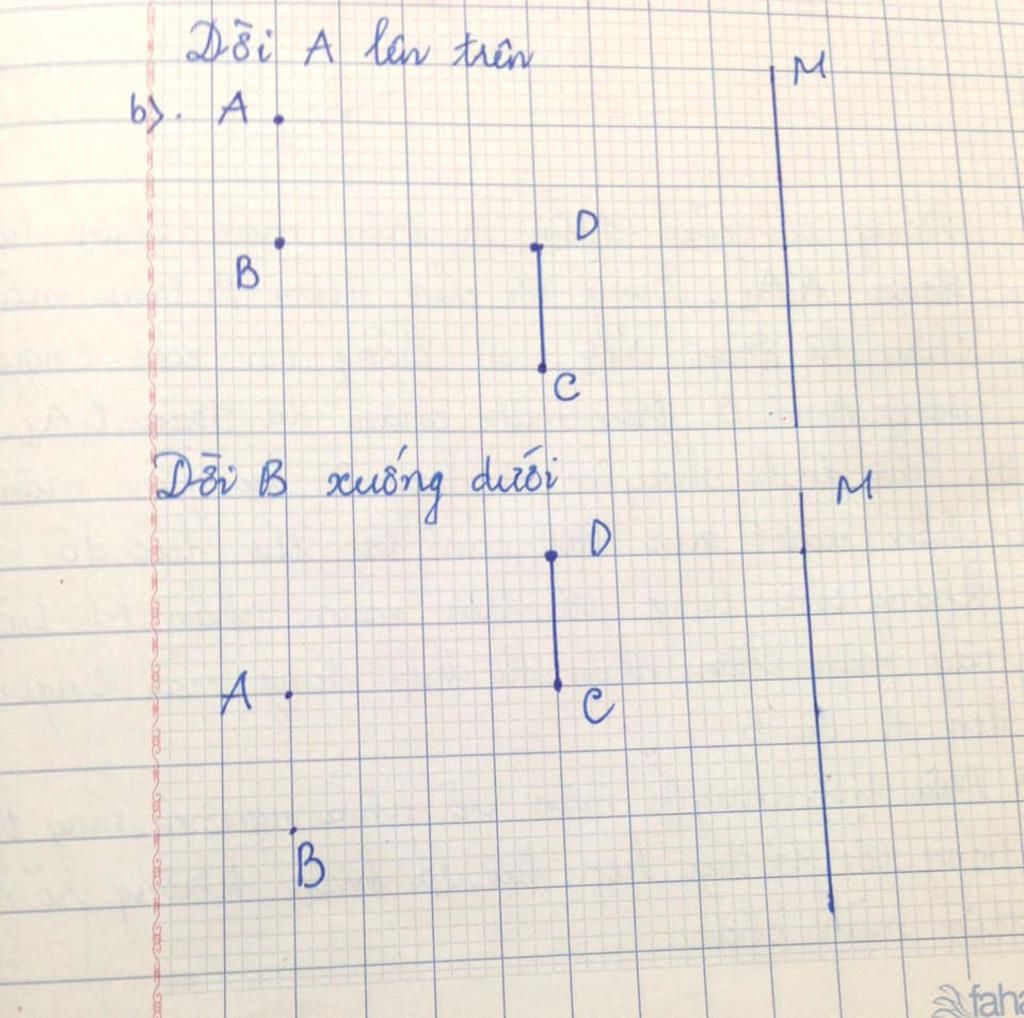 Dời A lên trên
M
b). A
D
B
C
Dời B xuống dưới
M
D
A
C
B
faha